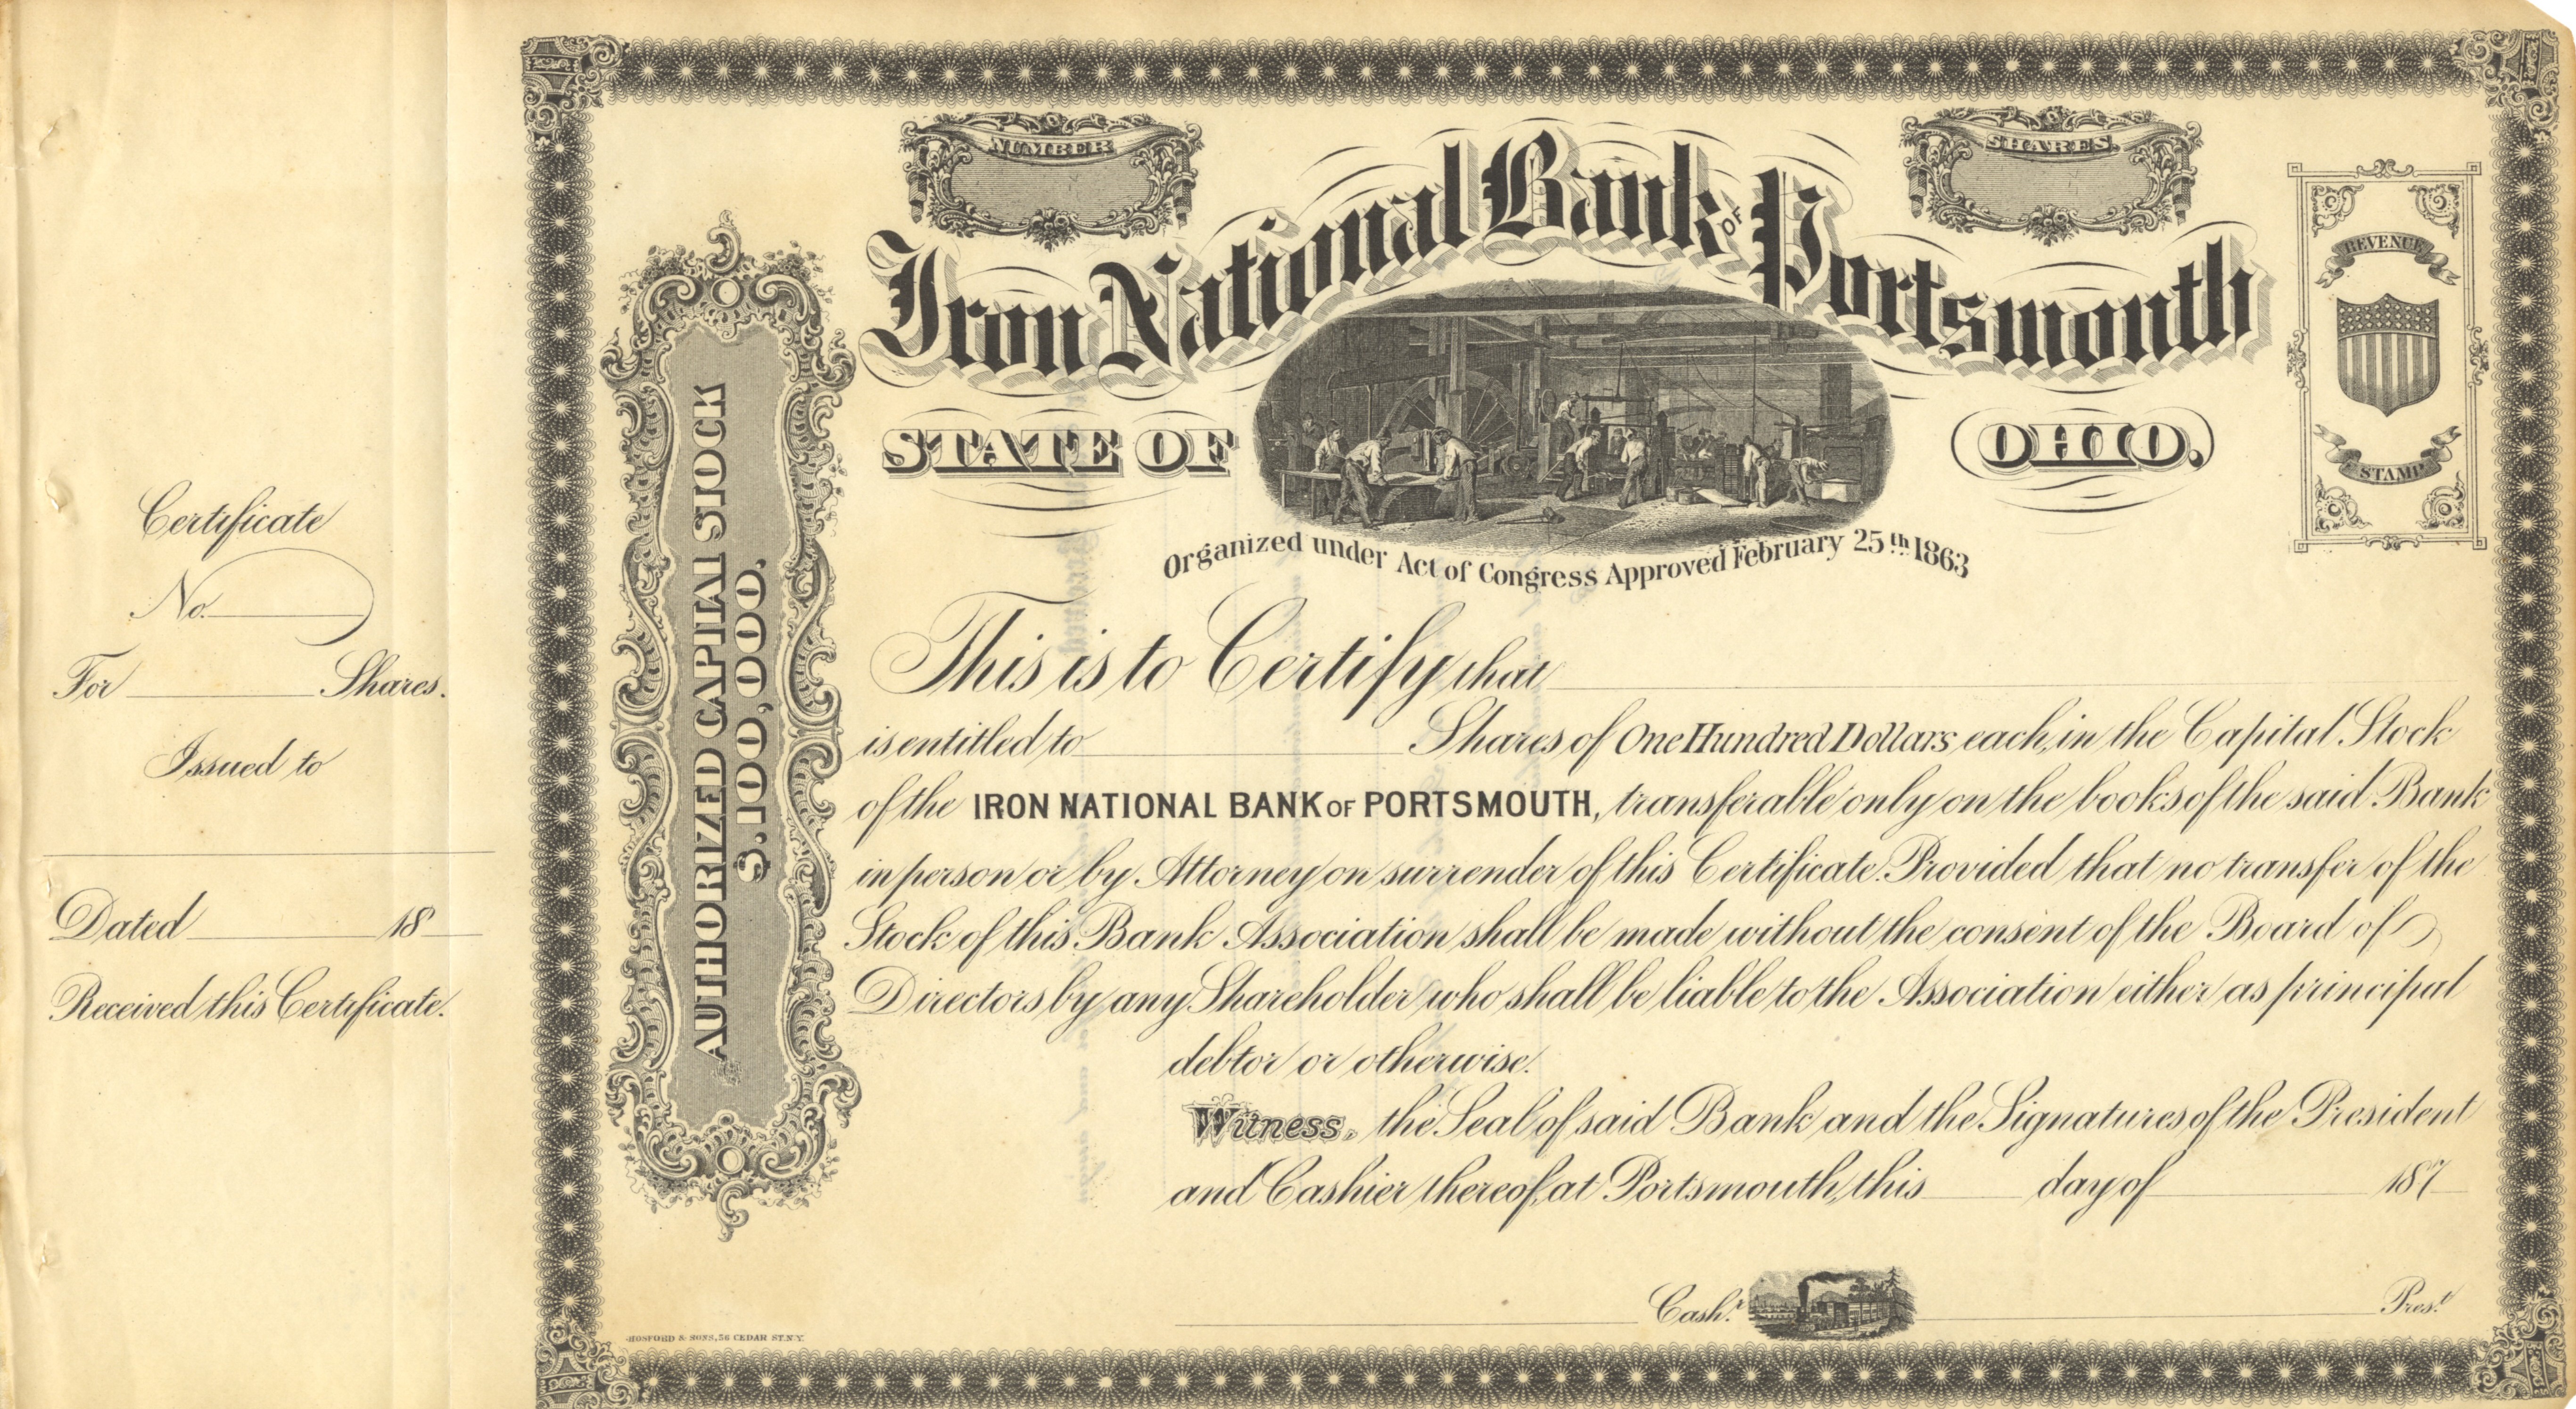 Certificate
No.
For Shares.
Issued to
Dated 18
Received this Certificate.
AUTHORIZED CAPITAL STOCK
$.100,000.
NUMBER
SHARES.
Iron National Bank OF Portsmouth
STATE OF OHIO.
REVENUE
STAMP
Organized under Act of Congress Approved February 25th 1863
This is to Certify that
is entitled to Shares of One Hundred Dollars each, in the Capital Stock
of the IRON NATIONAL BANK OF PORTSMOUTH, transferable only on the books of the said Bank
in person or by Attorney on surrender of this Certificate. Provided that no transfer of the
Stock of this Bank Association shall be made without the consent of the Board of
Directors by any Shareholder who shall be liable to the Association either as principal
debtor or otherwise.
Witness, the Seal of said Bank and the Signatures of the President
and Cashier thereof, at Portsmouth, this day of 187
Cashr. Prest.
HOSFORD & SONS, 56 CEDAR ST. N.Y.